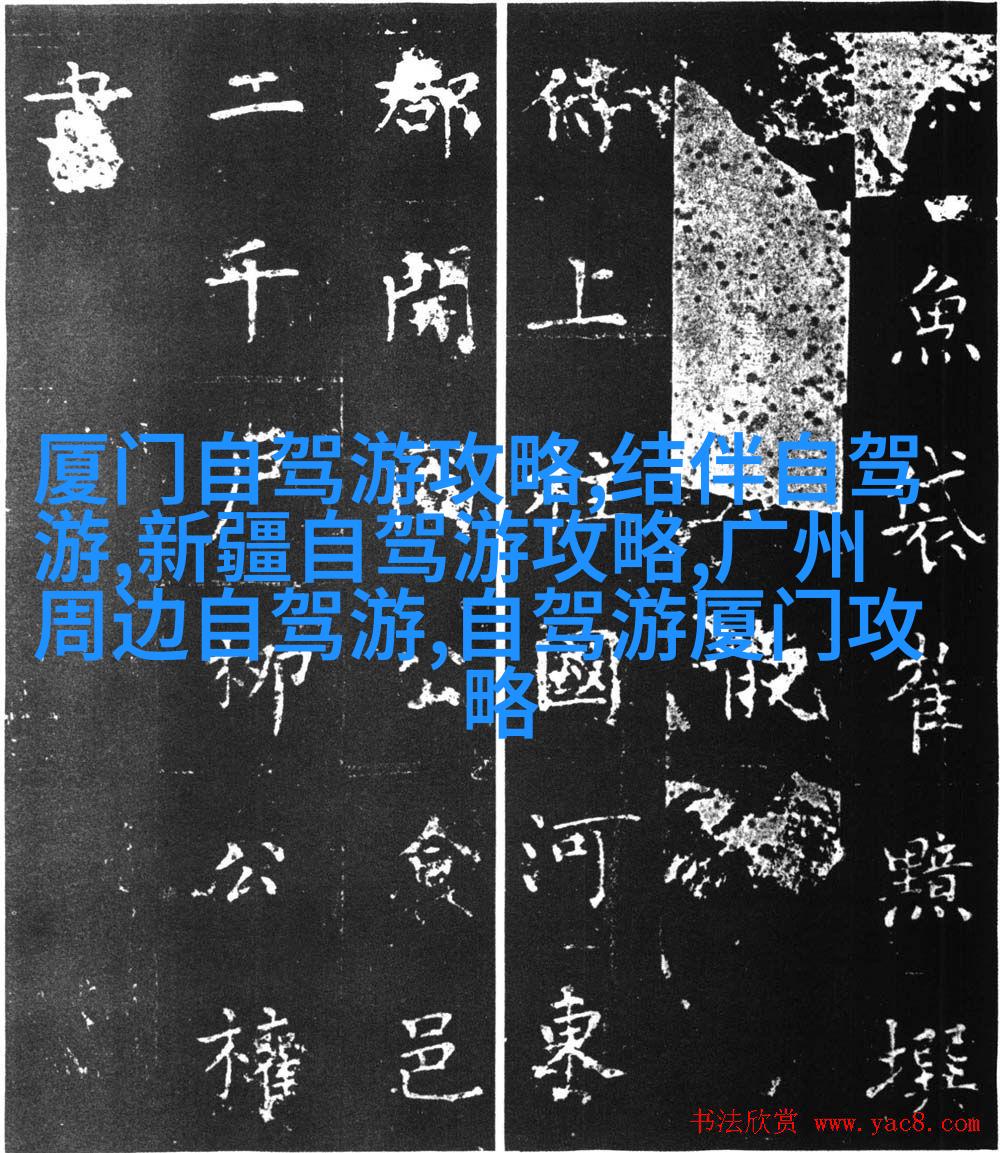 厦门自驾游攻略,结伴自驾
游,新疆自驾游攻略,广州
周边自驾游,自驾游厦门攻
略
魚袋崔黯撰
侍上柱國河東
都開國公食邑
二千戶柳公權
書
书法欣赏 www.yac8.com